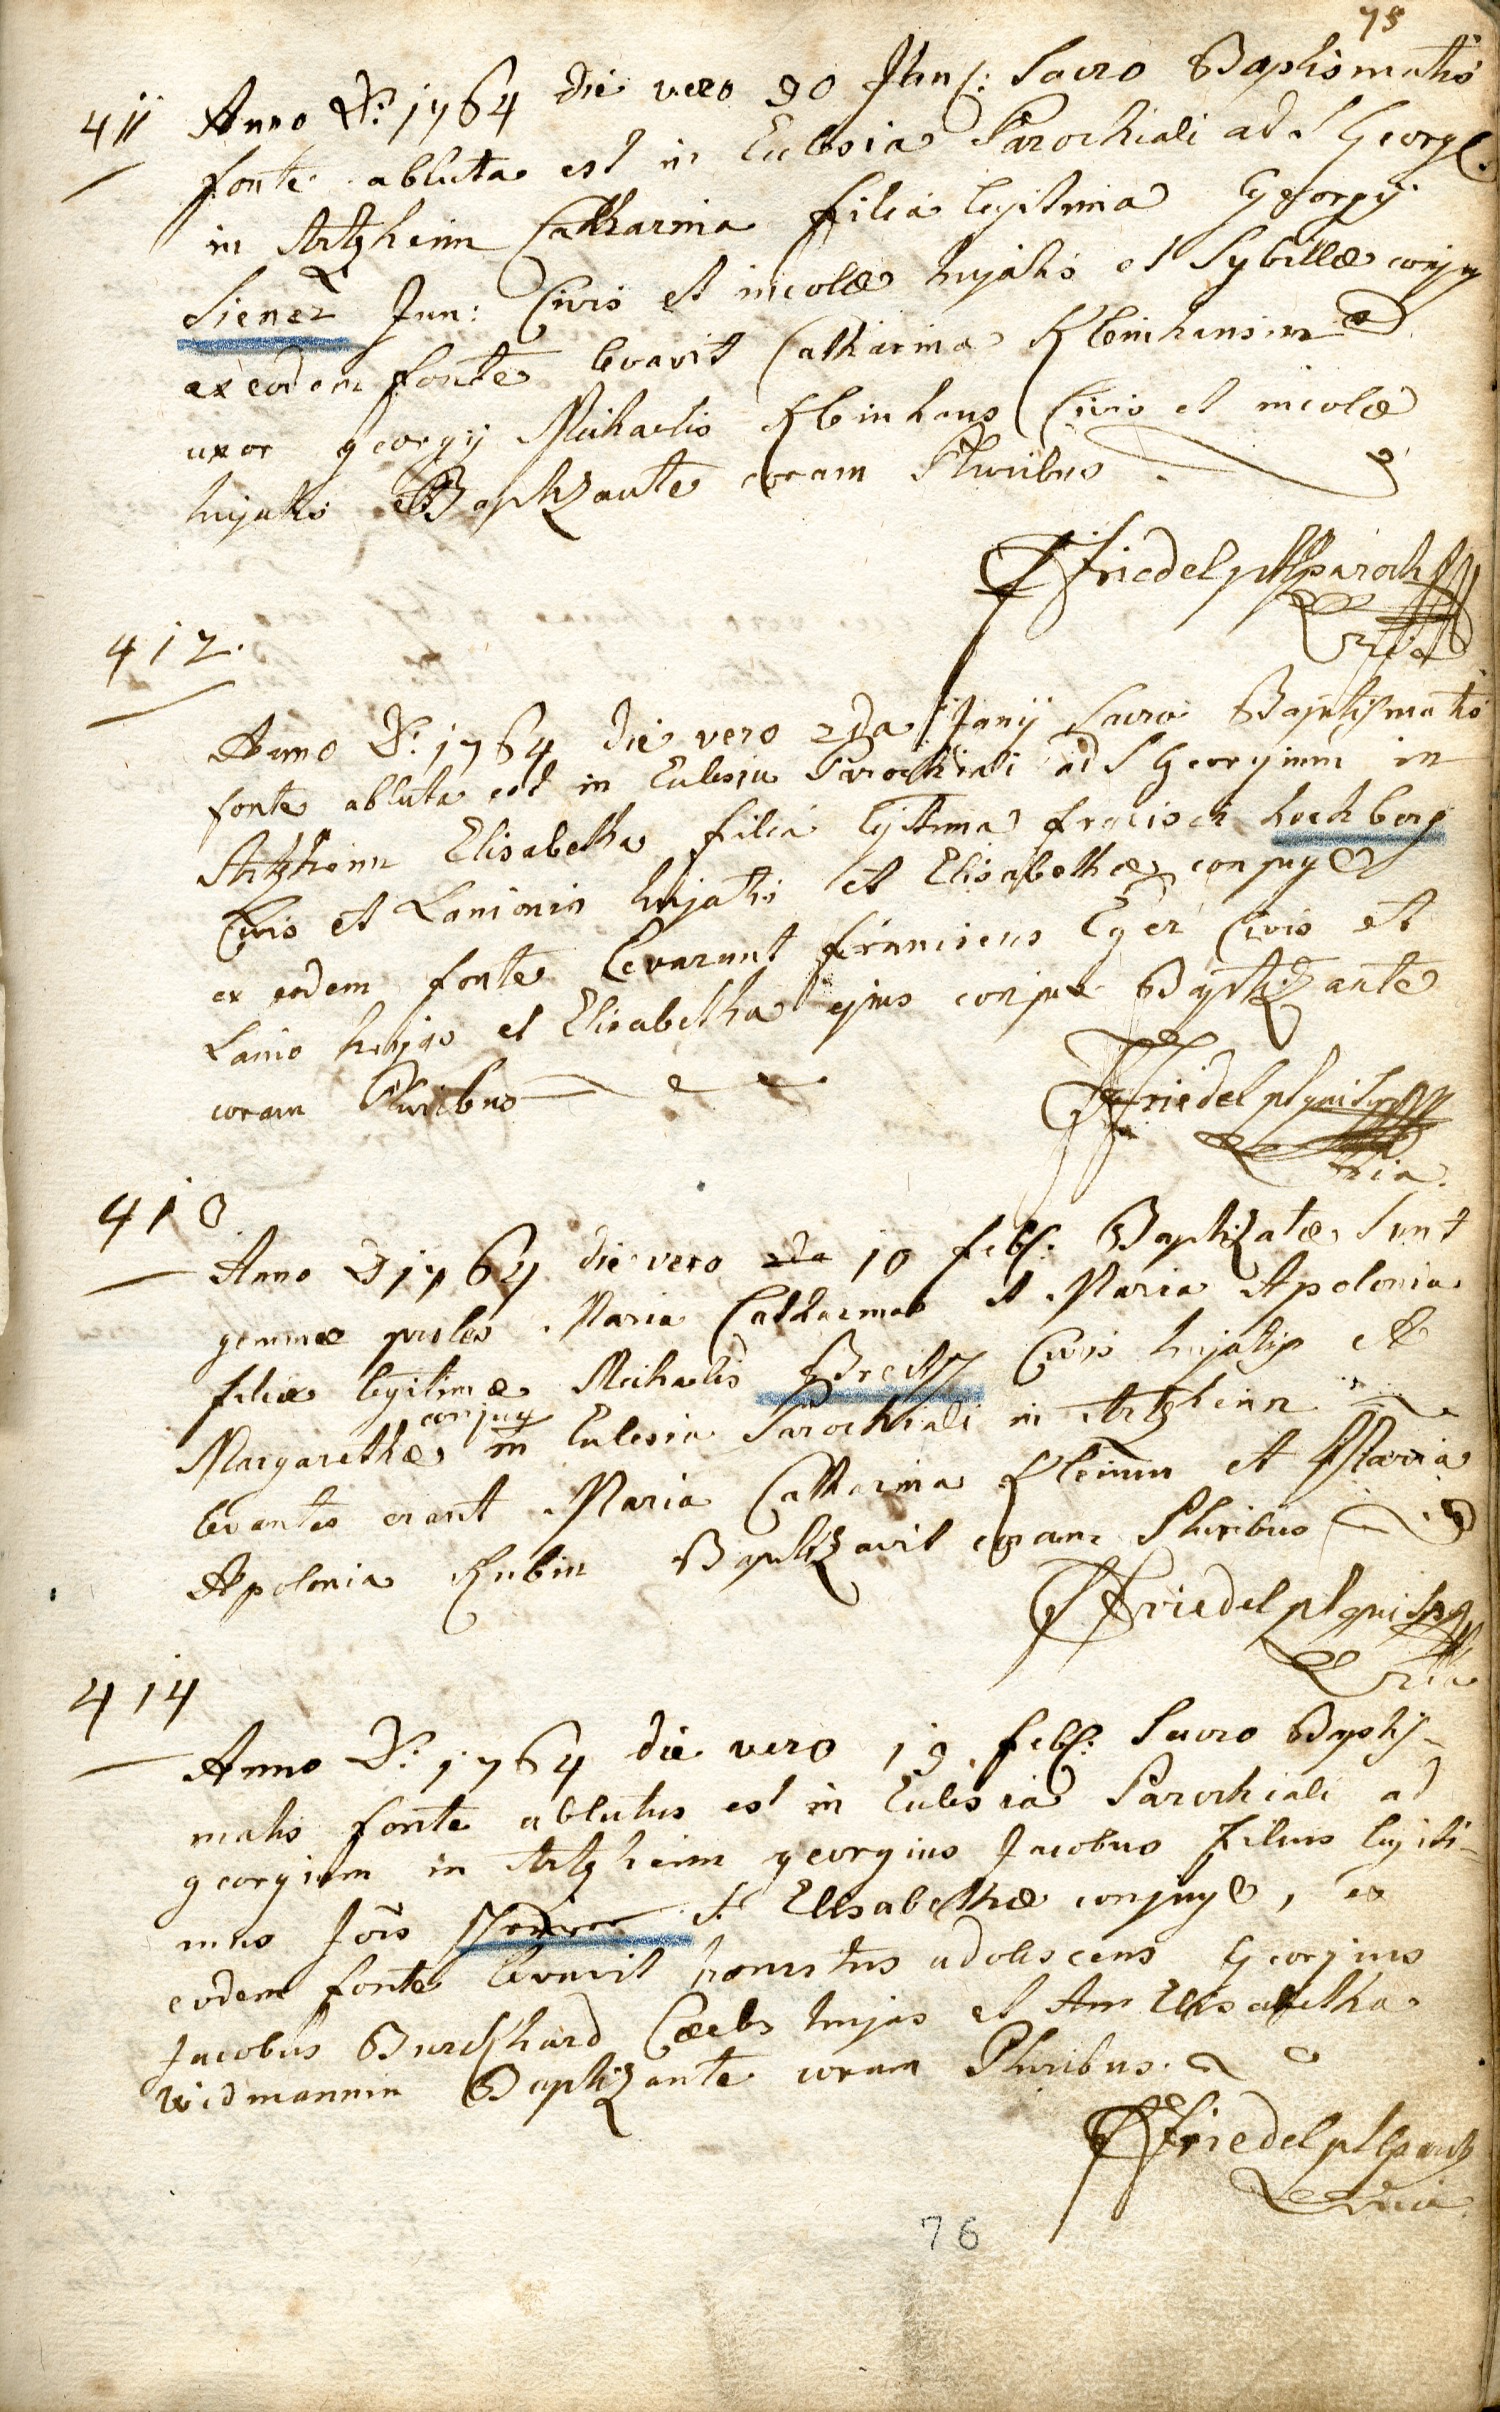 75
411 Anno D: 1764 die vero 30 Jan: Sacro Baptismatis
fonte abluta est in Eclesia Parochiali ad S Georg:
in Artzheim Catharina filia legitima Georgij
Siener Jun: Civis et incolæ hujatis et Sybillæ conjug
ex eodem fonte levavit Catharina Kleinhansin
uxor georgij Michaelis Kleinhans Civis et incolæ
hujatis Baptizante coram Pluribus
Friedel paroch
412.
Anno D: 1764 die vero 2da Janij Sacro Baptismatis
fonte abluta est in Eclesia Parochiali ad S Georgium in
Artzheim Elisabetha filia legitima francisci hochberg
Civis et Lanionis hujatis et Elisabethæ conjug
ex eodem fonte levarunt franciscus Eger Civis et
Lanio hujas et Elisabetha ejus conjux Baptizante
coram Pluribus
Friedel
413
Anno D 1764 die vero 2da 10 feb: Baptizatæ sunt
gemmæ proles Maria Catharina et Maria Apolonia
filiæ legitimæ Michaelis Civis hujatis et
Margarethæ conjug in Eclesia Parochiali in Artzheim
levantes erant Maria Catharina Kleinin et Maria
Apolonia Rubin Baptizavit coram Pluribus
Friedel
414
Anno D: 1764 die vero 19 feb: Sacro Baptis-
matis fonte ablutus est in Eclesia Parochiali ad
georgium in Artzheim georgius Jacobus filius legiti-
mus Jois et Elisabethæ conjug, ex
eodem fonte levavit honestus adolescens Georgius
Jacobus Burckhard Cælebs hujas et An Elisabetha
widmannin Baptizante coram Pluribus.
Friedel
76